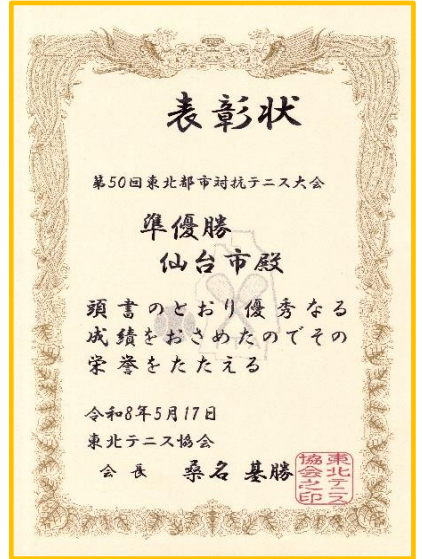 表彰状
第50回東北都市対抗テニス大会
準優勝
仙台市殿
頭書のとおり優秀なる
成績をおさめたのでその
栄誉をたたえる
令和8年5月17日
東北テニス協会
会長 桑名基勝
東北テニス
協会之印